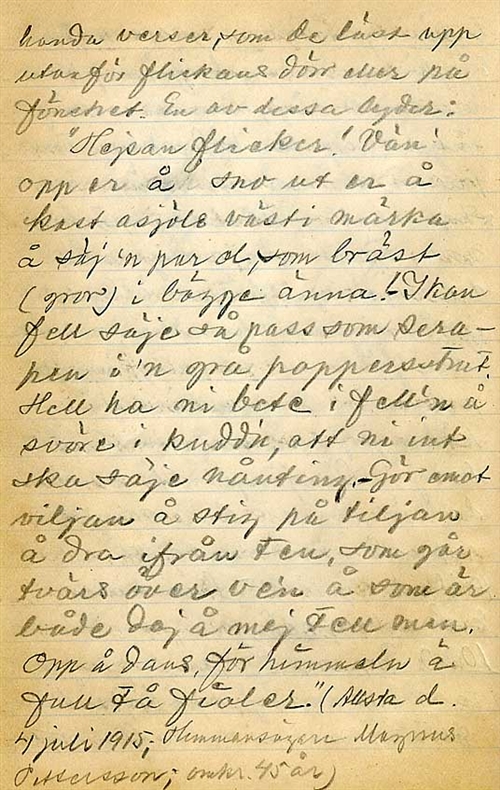 handa verser, som de läst upp
utanför flickans dörr eller på
fönstret. En av dessa lyder:
"Hejsan flicker! Vän
opp er å sno ut er å
kast asjöls västi märka
å säj 'n par ol, som bräst
(gror) i bägge änna! - I kan
fell säje så pass som sera-
pen i 'n grå pappersstrut.
Hell ha ni bete i fell'n å
svöre i kudd'n, att ni int
ska säje nånting. - Gör emot
viljan å stig på tiljan
å dra ifrån ten, som går
tvärs över ve'n å som är
både dej å mej tell men.
Opp å dans, för himmeln ä
full tå fioler." (Alsta d.
4 juli 1915; Hemmansägare Magnus
Pettersson; omkr. 45 år)